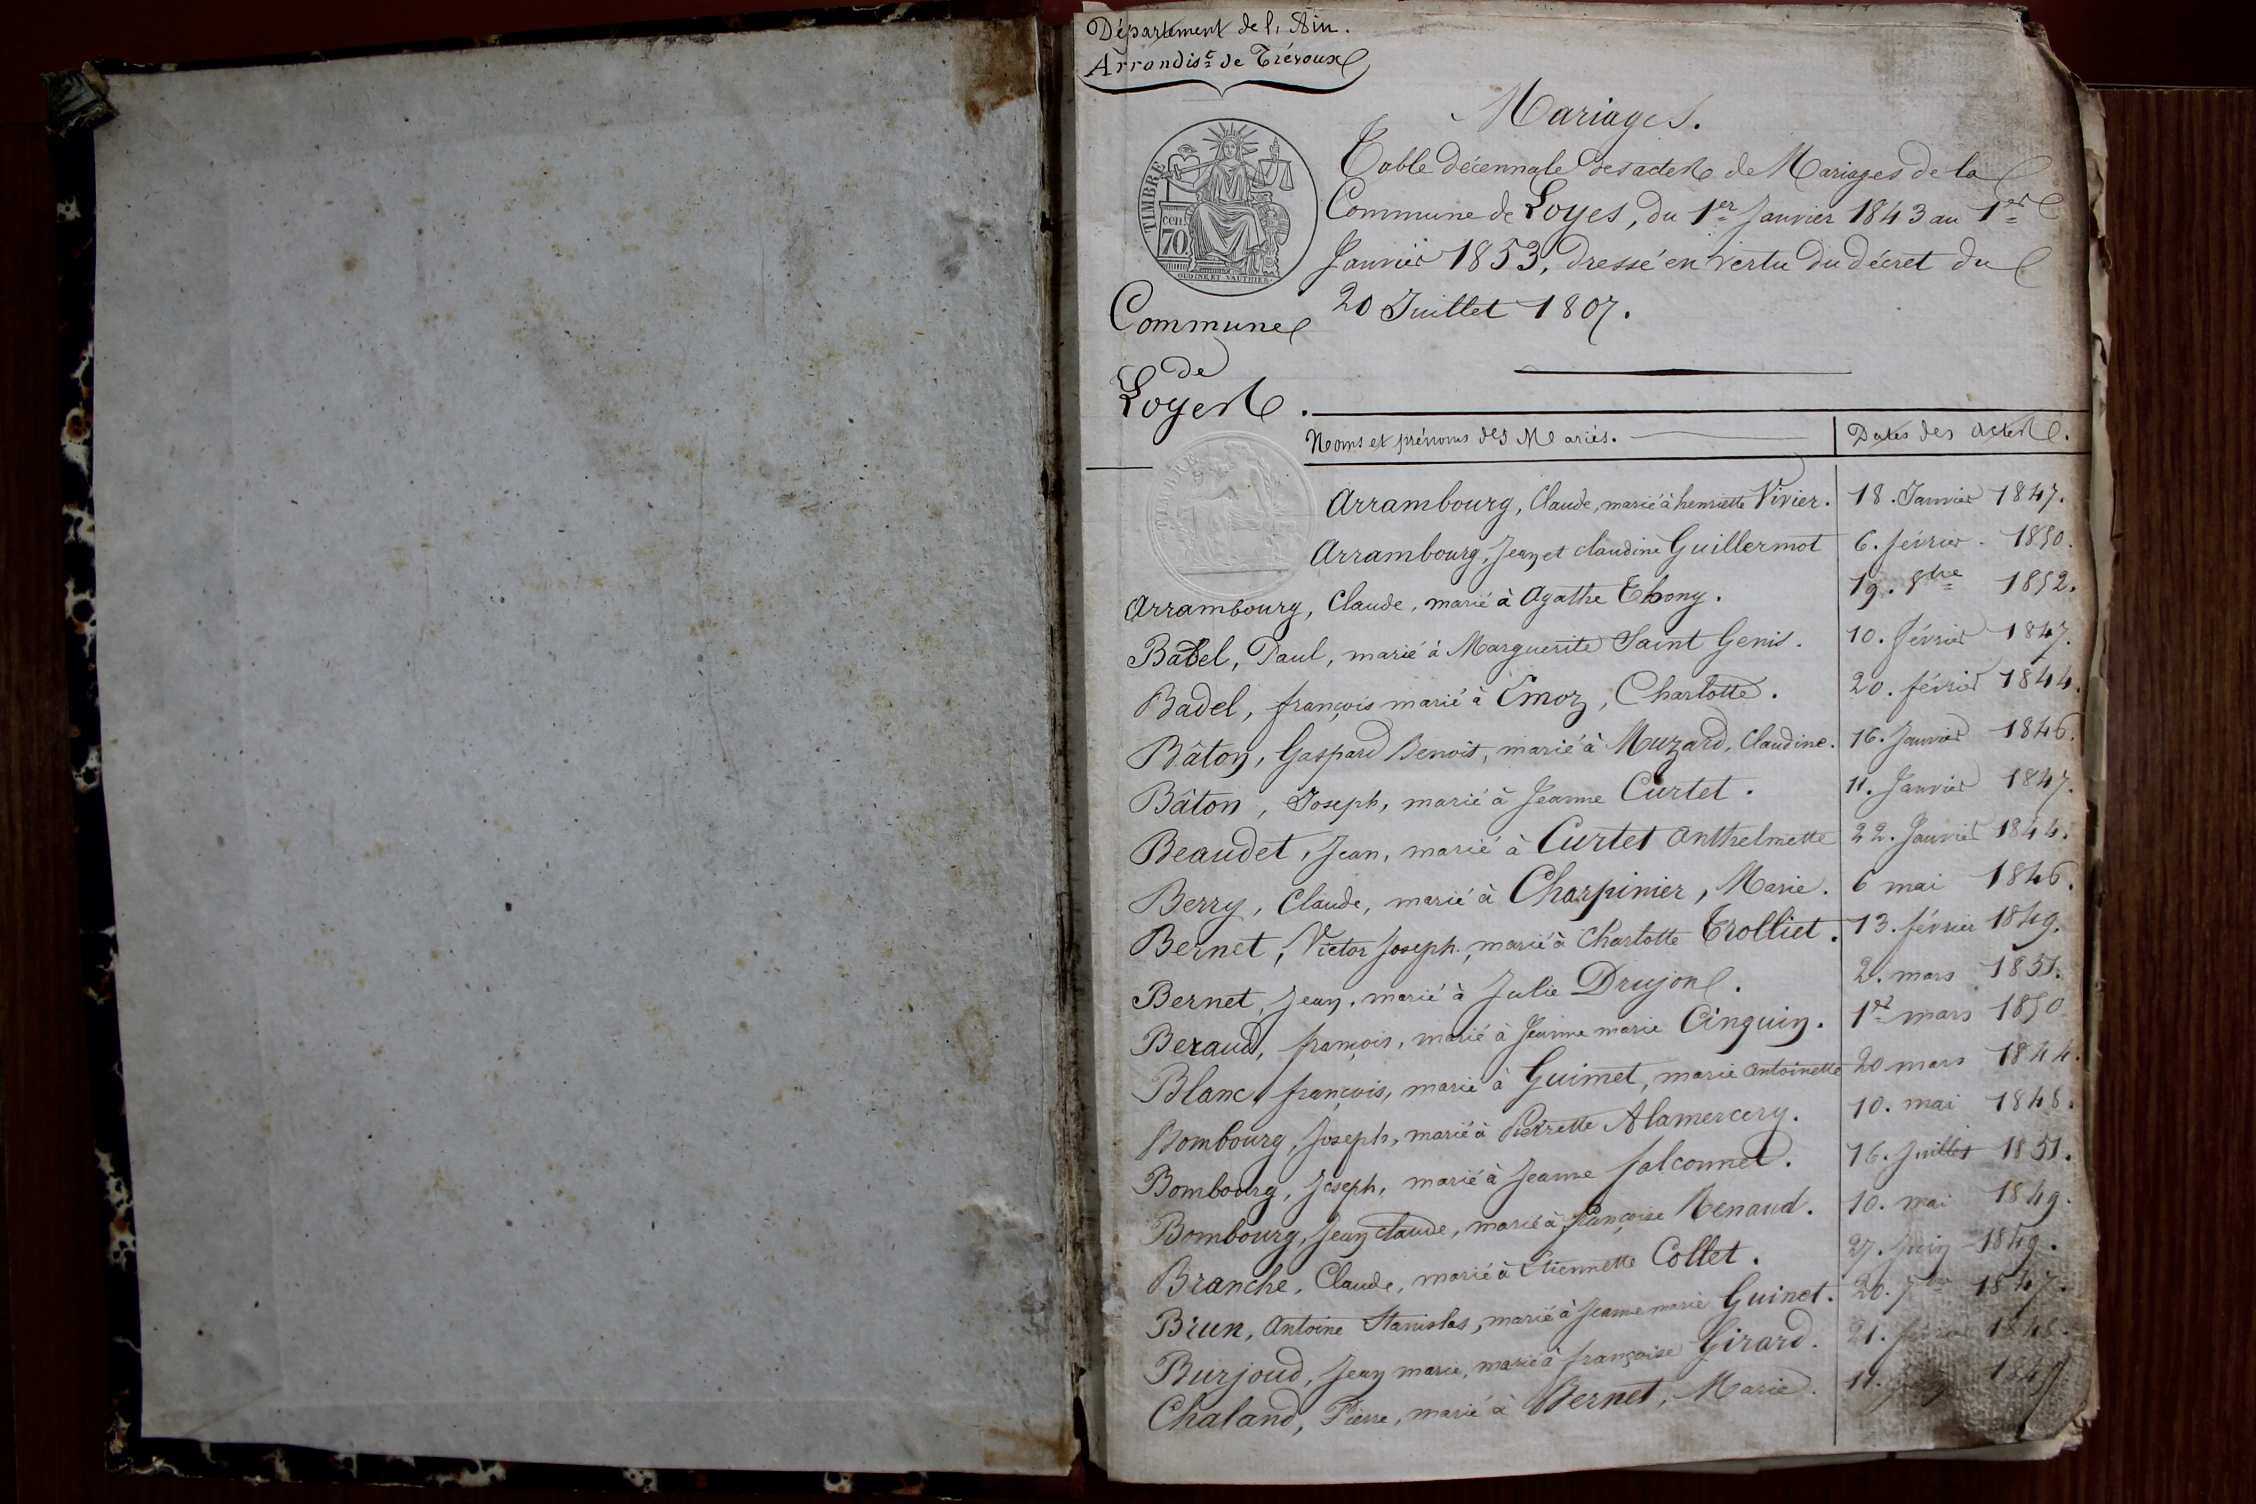 Département de l'Ain.
Arrondis.t de Trévoux
Mariages.
TIMBRE
cen.
70.
OUDINE ET VAUTHIER
Table décennale des actes de Mariages de la
Commune de Loyes, du 1er Janvier 1843 au 1er
Janvier 1853, dressé en vertu du décret du
20 Juillet 1807.
Commune
de
Loyes.
Noms et prénoms des Mariés. Dates des actes.
TIMBRE
Arrambourg, Claude, marié à henriette Vivier. 18. Janvier 1847.
Arrambourg, Jean et claudine Guillermot 6. février. 1850.
Arrambourg, Claude, marié à Agathe Thony. 19. 8bre 1852.
Babel, Paul, marié à Marguerite Saint Genis. 10. février 1847.
Badel, françois marié à Emoz, Charlotte. 20. février 1844.
Bâton, Gaspard Benoit, marié à Muzard, Claudine. 16. Janvier 1846.
Bâton, Joseph, marié à Jeanne Curtet. 11. Janvier 1847.
Beaudet, Jean, marié à Curtet Anthelmette 22. Janvier 1844.
Berry, Claude, marié à Charpinier, Marie. 6 mai 1846.
Bernet, Victor Joseph, marié à Charlotte Trolliet. 13. février 1849.
Bernet, Jean, marié à Julie Drujon. 2. mars 1851.
Beraud, françois, marié à Jeanne marie Cinquin. 1er mars 1850
Blanc, françois, marié à Guimet, marie antoinette 20 mars 1844.
Bombourg, Joseph, marié à Pierrette Alamercery. 10. mai 1848.
Bombourg, Joseph, marié à Jeanne falconnet. 16. Juillet 1851.
Bombourg, Jean claude, marié à françoise Renaud. 10. mai 1849.
Branche, Claude, marié à Etiennette Collet. 27. Juin 1849.
Brun, Antoine Stanislas, marié à Jeanne marie Guinet. 20. 7bre 1847.
Burjoud, Jean marie, marié à françoise Girard. 21. février 1848.
Chaland, Pierre, marié à Bernet, Marie. 11.